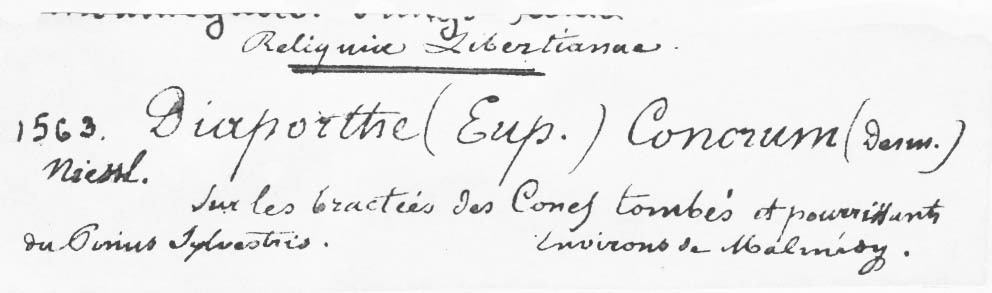 Reliquiæ Libertianae.
1563. Diaporthe (Eup.) Conorum (Desm.)
Niessl.
Sur les bractées des Cones tombés et pourrissants
du Pinus Sylvestris. Environs de Malmédy.